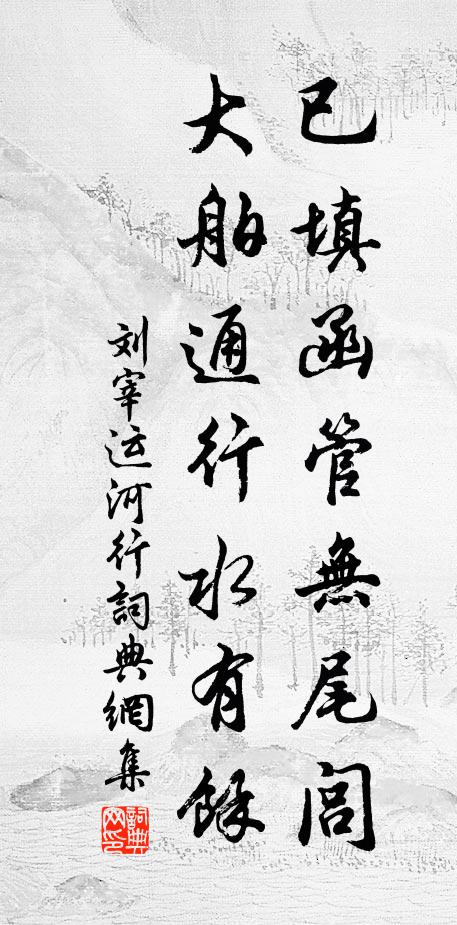 已填函管無尾閭
大舶通行水有餘
刘宰运河行詞典網集
詞典网印